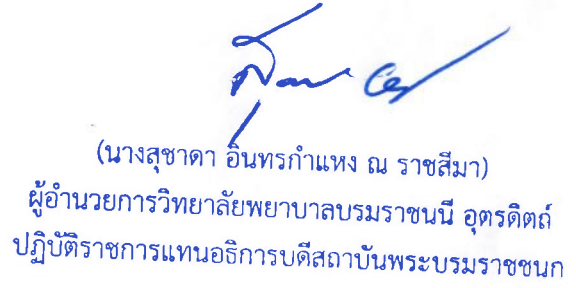 (นางสุชาดา อินทรกำแหง ณ ราชสีมา)
ผู้อำนวยการวิทยาลัยพยาบาลบรมราชนนี อุตรดิตถ์
ปฏิบัติราชการแทนอธิการบดีสถาบันพระบรมราชชนก